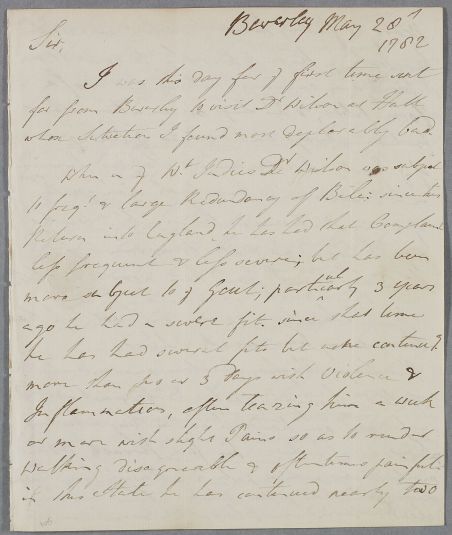 Beverley May 28th
1782
Sir,
I was this day for ye first time sent
for from Beverley to visit Dr Wilson at Hull
whose Situation I found most deplorably bad.
When in ye Wt Indies Dr Wilson was subject
to freqt & large Redundancy of Bile: since his
Return into England he has had that Complaint
less frequent & less severe; but has been
more subject to ye Gout; particularly 3 years
ago he had a severe fit. since that time
he has had several fits but none continued
more than two or 3 Days with Violence &
Inflammation, often teazing him a week
or more with slight Pains so as to render
walking disagreeable & oftentimes painful.
in this State he has continued nearly two